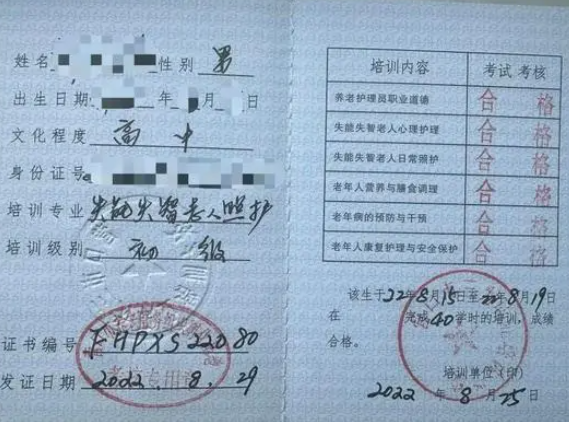 姓名 性别 男
出生日期 年 月 日
文化程度 高中
身份证号
培训专业 失能失智老人照护
培训级别 初级
证书编号 FHPXS22080
发证日期 2022.8.29
考核专用章
培训内容 考试 考核
养老护理员职业道德 合格
失能失智老人心理护理 合格
失能失智老人日常照护 合格
老年人营养与膳食调理 合格
老年病的预防与干预 合格
老年人康复护理与安全保护 合格
该生于22年8月15日至22年8月19日
在 完成40学时的培训,成绩
合格。
培训单位(印)
2022 年 8 月 25 日